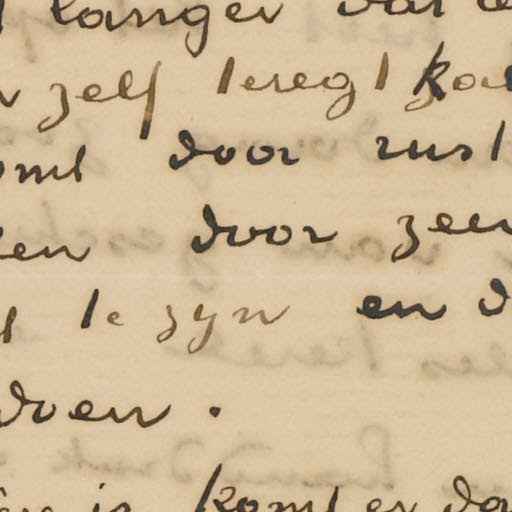 langer dat
zelf teregt kan
omt door rust
en door zeer
te zyn en d
doen.
is komt er da